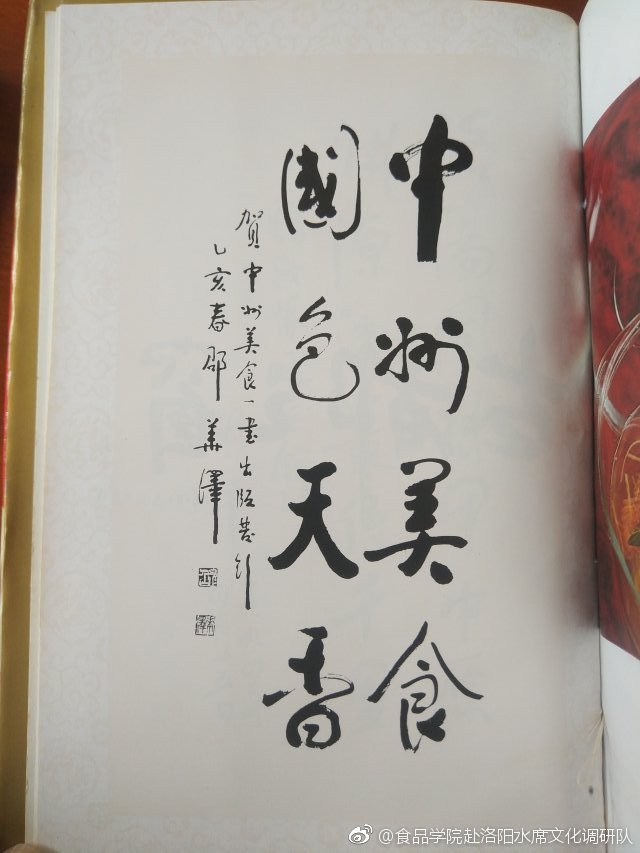 中州美食
國色天香
賀中州美食一書出版发行
乙亥春邵華澤
@食品学院赴洛阳水席文化调研队